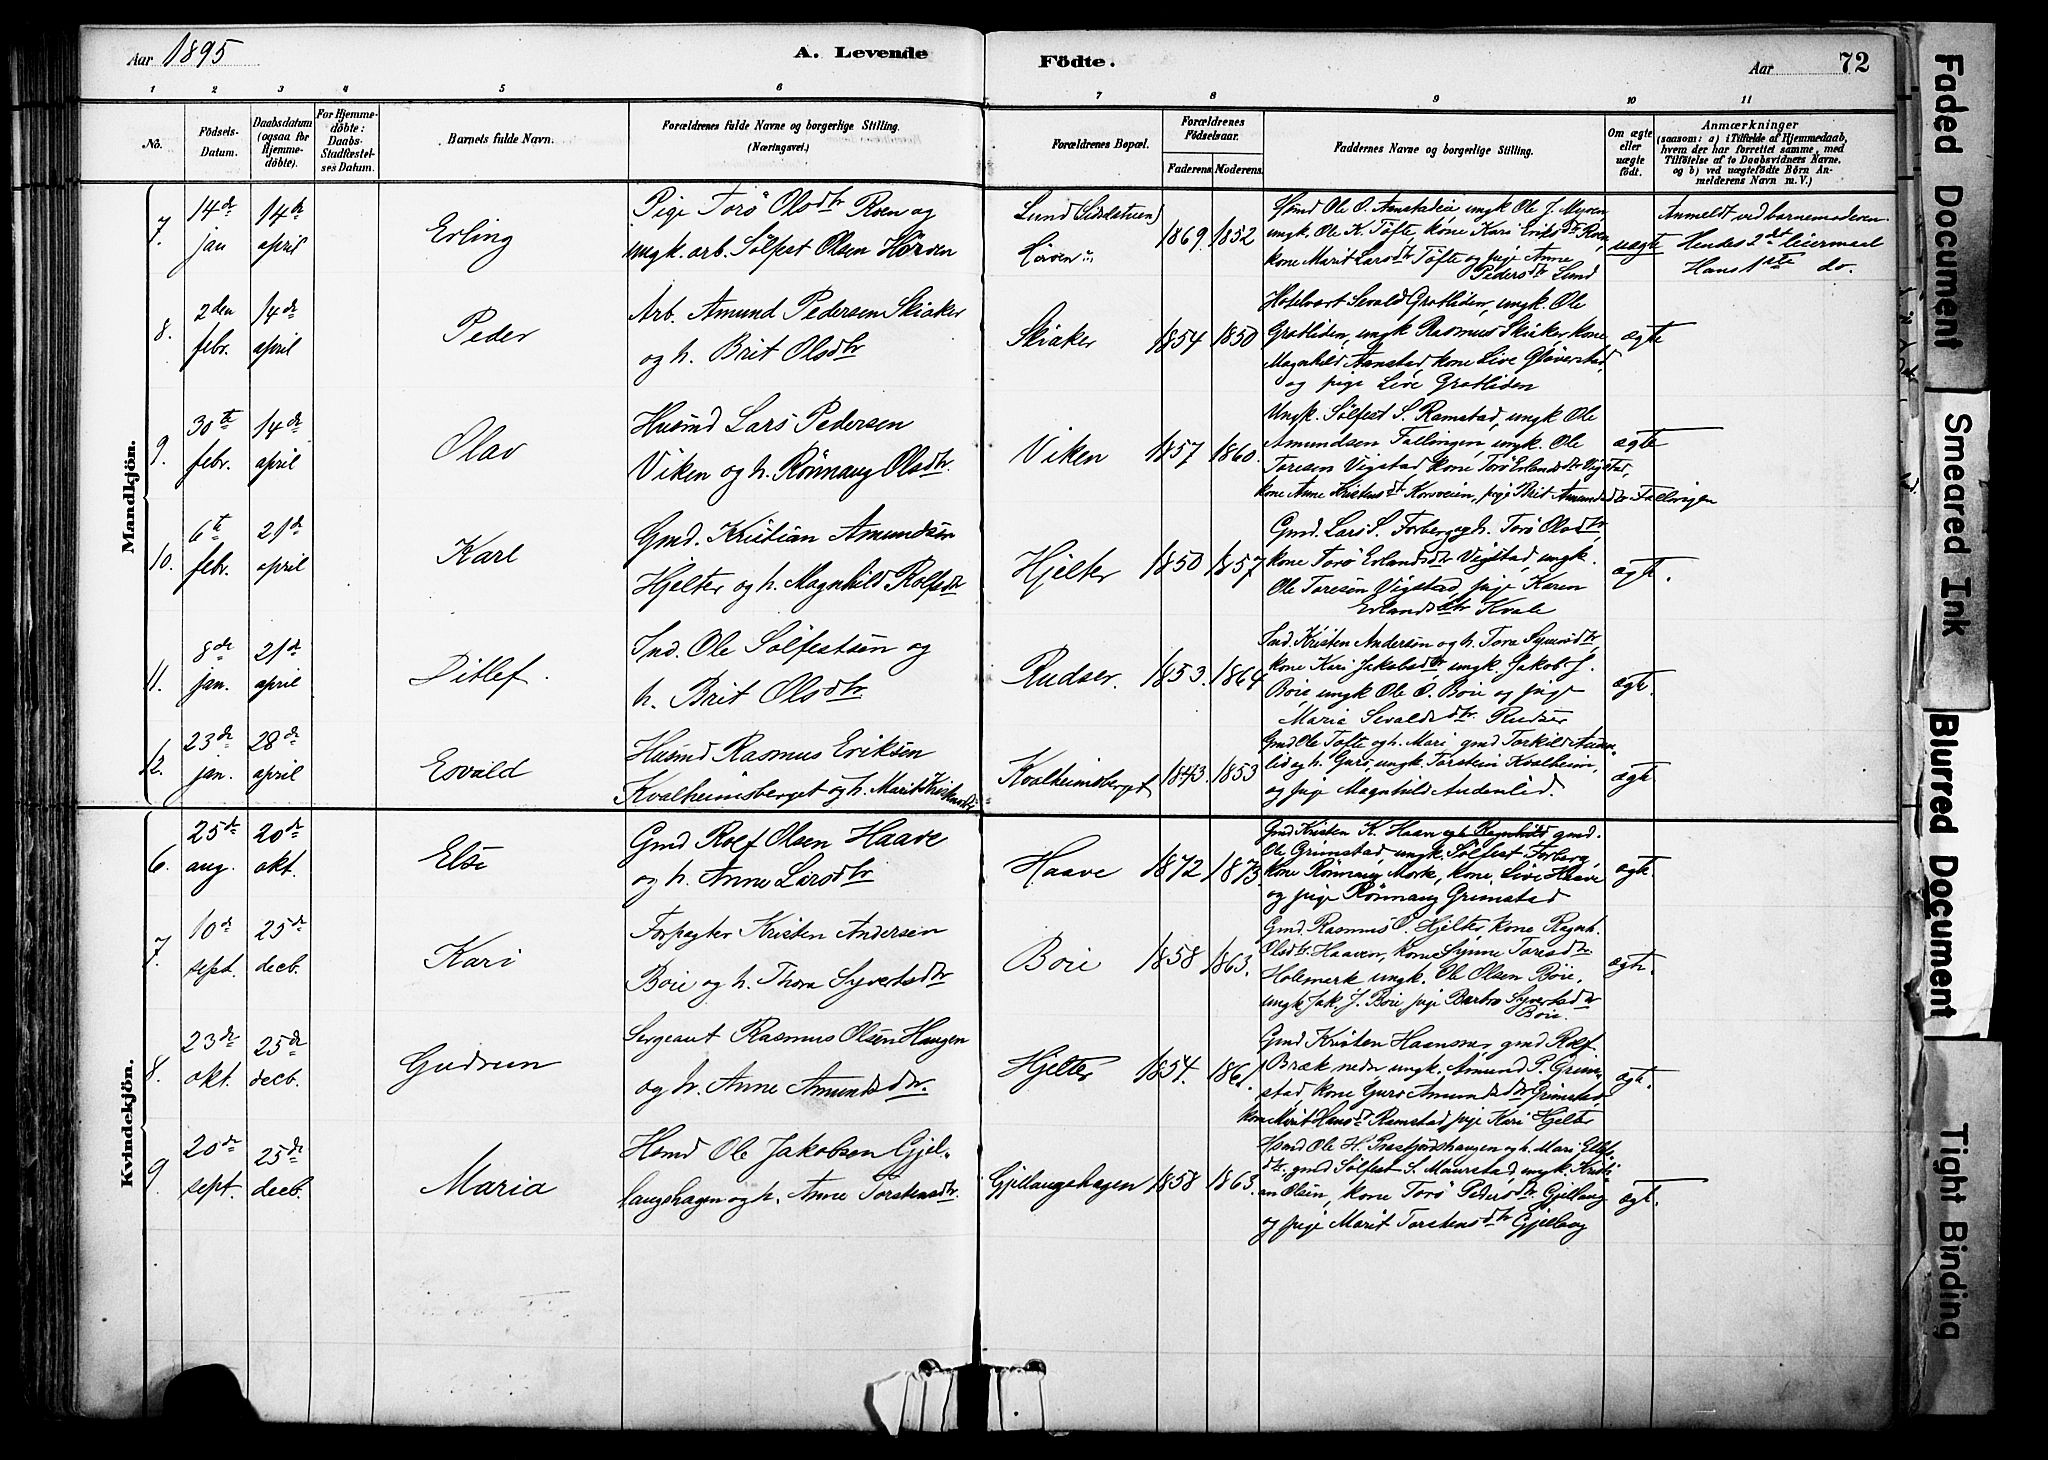 Aar 1895
A. Levende
Födte.
Aar
72
1 2 3 4 5 6 7 8 9 10 11
No.
Födsels-
Datum.
Daabsdatum
(ogsaa for
Hjemme-
döbte).
For Hjemme-
döbte:
Daabs-
Stadfæstel-
ses Datum.
Barnets fulde Navn.
Forældrenes fulde Navne og borgerlige Stilling.
(Næringsvei.)
Forældrenes Bopæl.
Forældrenes
Födselsaar.
Faderens Moderens.
Faddernes Navne og borgerlige Stilling.
Om ægte
eller
uægte
födt.
Anmærkninger
(saasom: a) i Tilfælde af Hjemmedaab,
hvem der har forrettet samme, med
Tilföielse af to Daabsvidners Navne.
og b) ved uægtefödte Börn An-
melderens Navn m. V.)
Mandkjön.
7.
14de
jan
14de
april
Erling
Pige Torö Olsdtr Roen og
ungk. arb. Sölfest Olsen Hörven
Lund
Hörven
1869. 1852
Hsmd Ole O. Aanstadeie ungk Ole J. Myren,
ungk. Ole K. Tofte, kone Kari Eriksdtr Roen,
kone Marit Larsdtr Tofte og pige Anne
Pedersdtr Lund
uægte
Anmeldt ved barnemoderen.
Hendes 2det leiermaal
Hans 1ste do.
8.
2den
febr.
14de
april
Peder
Arb. Amund Pedersen Skiaker
og h. Brit Olsdtr
Skiaker
1854 1850
Hotelvært Sevald Grotliden, ungk. Ole
Grotliden, ungk Rasmus Skiaker, kone
Magnhild Aanstad, kone Live
og pige Live Grotliden
ægte
9.
30te
febr.
14de
april
Olav
Husmd Lars Pedersen
Viken og h. Rönnaug Olsdtr.
Viken
1857 1860.
Ungk. Sölfest S. Ramstad, ungk Ole
Amundsen Fallingen, ungk. Ole
Toresen Vigstad, kone Torö Erlandsdtr Vigstad,
kone Anne Kristensdtr Korsveien, pige Brit Amundsdtr Fallingen
ægte
10.
6te
febr.
21de
april
Karl
Gmd. Kristian Amundsen
Hjelter og h. Magnhild Rolfsdtr
Hjelter
1850 1857
Gmd. Lars S. Forberg og h. Torö Olsdtr,
kone Torö Erlandsdtr Vigstad, ungk.
Ole Toresen Vigstad, pige Karen
Erlandsdtr Kvale
ægt.
11.
8de
jan.
21de
april
Ditlef.
Ind. Ole Sölfestsen og
h. Brit Olsdtr
Rudser.
1853. 1864
Ind. Kristen Andersen og h. Tora
kone Kari Jakobsdtr ungk. Jakob J.
Böie, ungk Ole O. Böie og pige
Maria Sevaldsdtr. Rudser
ægt.
12.
23de
jan.
28de
april
Esvald
Husmd Rasmus Eriksen
Kvalheimsberget og h. Marit
Kvalheimsberget
1843. 1853
Gmd Ole Tofte og h. Mari, gmd Torkild Auden-
lid og h. Guri, ungk. Torstein Kvalheim,
og pige Magnhild Audenlid.
ægt
Kvindekjön.
6.
25de
aug.
20de
okt.
Else
Gmd Rolf Olsen Haave
og h. Anne Larsdtr
Haave
1872 1873.
Gmd Kristen K. Haave og h Ragnhild gmd.
Ole Grimstad, ungk. Sölfest Forberg,
kone Rönnaug Mork, kone Live Haave
og pige Rönnaug Grimstad
ægt.
7.
10de
sept.
25de
decb.
Kari
Forpagter Kristen Andersen
Böie og h. Thora Syvertsdtr
Böie
1858 1863.
Gmd. Rasmus O. Hjelter kone Ragnh.
Olsdtr. Haaven, kone Synne Toresdtr
Holemark ungk. Ole Olsen Böie,
ungk Jak. J. Böie pige Barbro Syvertsdtr
Böie.
ægt.
8.
23de
okt.
25de
decb.
Gudrun
Sergeant Rasmus Olsen Haugen
og h. Anne Amundsdtr.
Hjelter
1854. 1861.
Gmd Kristen gmd Rolf
Bræk nedr ungk. Amund P. Grim-
stad, kone Guro Amundsdtr Grimstad
kone Marit Hansdtr Ramstad pige Kari Hjelter
ægt.
9
20de
sept.
25de
decb.
Maria
Hsmd Ole Jakobsen Gjel-
laugshagen og h. Anne Torstensdtr.
Gjellaugshagen
1858 1863.
Hsmd Ole H. og h. Mari
dtr. gmd Sölfest S. Maurstad, ungk. Kristi-
an Olsen, kone Torö Pedersdtr Gjellaug
og pige Marit Torstensdtr Gjellaug
ægt.
Faded Document
Smeared Ink
Blurred Document
Tight Binding